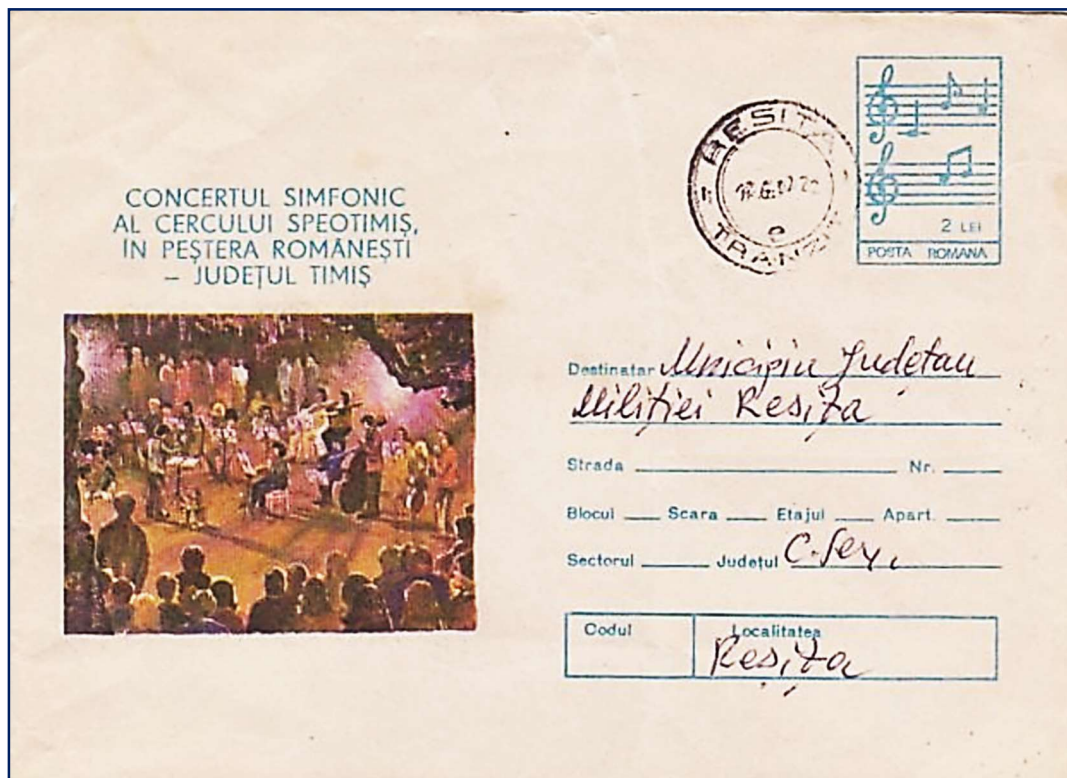 CONCERTUL SIMFONIC
AL CERCULUI SPEOTIMIȘ,
IN PEȘTERA ROMÂNEȘTI
– JUDEȚUL TIMIȘ
RESITA
TRANZIT
e
2 LEI
POSTA ROMANA
Destinatar Municipiu Judetau
Miliției Resița
Strada Nr.
Blocul Scara Etajul Apart.
Sectorul Județul C-Sev,
Codul Localitatea
Resița